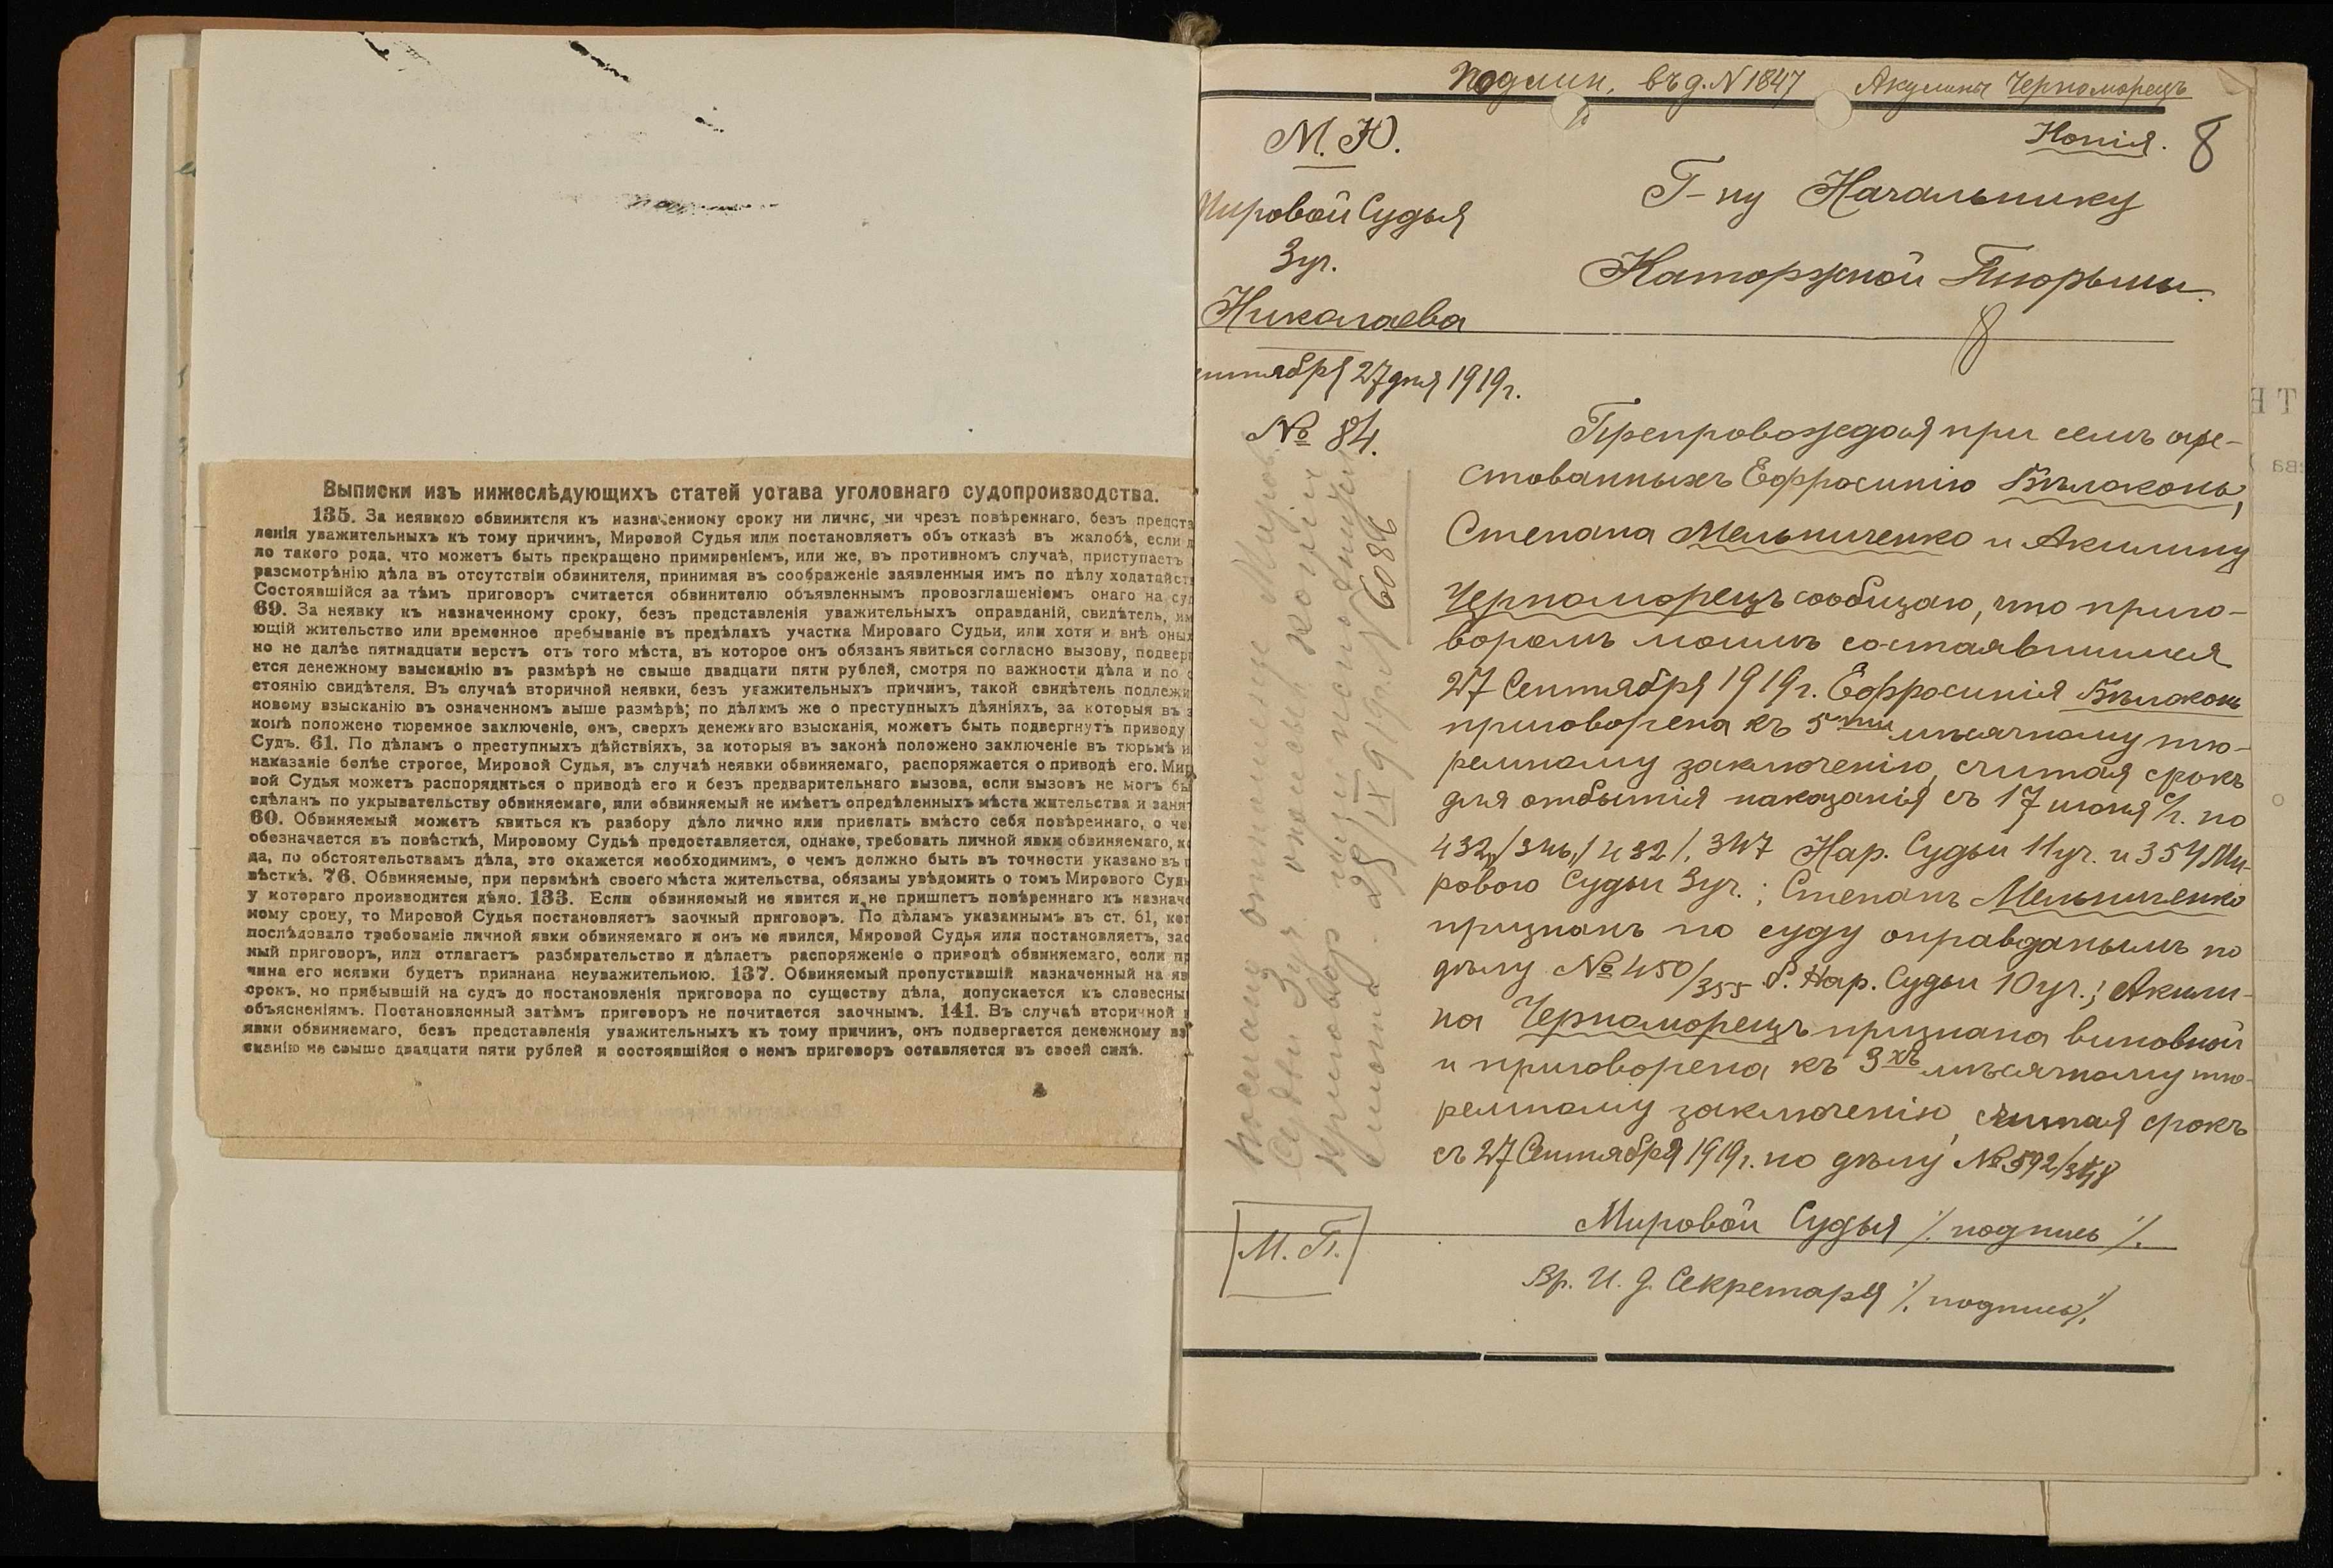 Выписки изъ нижеслѣдующихъ статей устава уголовнаго судопроизводства.
135. За неявкою обвинителя къ назначенному сроку ни лично, ни чрезъ повѣреннаго, безъ предста
ленія уважительныхъ къ тому причинъ, Мировой Судья или постановляетъ объ отказѣ въ жалобѣ, если д
ло такого рода, что можетъ быть прекращено примиреніемъ, или же, въ противномъ случаѣ, приступаетъ
разсмотрѣнію дѣла въ отсутствіи обвинителя, принимая въ соображеніе заявленныя имъ по дѣлу ходатайст
Состоявшійся за тѣмъ приговоръ считается обвинителю объявленнымъ провозглашеніемъ онаго на су
69. За неявку къ назначенному сроку, безъ представленія уважительныхъ оправданій, свидѣтель, им
ющій жительство или временное пребываніе въ предѣлахъ участка Мироваго Судьи, или хотя и внѣ оных
но не далѣе пятнадцати верстъ отъ того мѣста, въ которое онъ обязанъ явиться согласно вызову, подвер
ется денежному взысканію въ размѣрѣ не свыше двадцати пяти рублей, смотря по важности дѣла и по с
стоянію свидѣтеля. Въ случаѣ вторичной неявки, безъ уважительныхъ причинъ, такой свидѣтель подлежи
новому взысканію въ означенномъ выше размѣрѣ; по дѣламъ же о преступныхъ дѣяніяхъ, за которыя въ з
конѣ положено тюремное заключеніе, онъ, сверхъ денежнаго взысканія, можетъ быть подвергнутъ приводу
Судъ. 61. По дѣламъ о преступныхъ дѣйствіяхъ, за которыя въ законѣ положено заключеніе въ тюрьмѣ и
наказаніе болѣе строгое, Мировой Судья, въ случаѣ неявки обвиняемаго, распоряжается о приводѣ его. Мир
вой Судья можетъ распорядиться о приводѣ его и безъ предварительнаго вызова, если вызовъ не могъ бы
сдѣланъ по укрывательству обвиняемаго, или обвиняемый не имѣетъ опредѣленныхъ мѣста жительства и занят
60. Обвиняемый можетъ явиться къ разбору дѣло лично или прислать вмѣсто себя повѣреннаго, о че
обозначается въ повѣсткѣ, Мировому Судьѣ предоставляется, однако, требовать личной явки обвиняемаго, к
да, по обстоятельствамъ дѣла, это окажется необходимимъ, о чемъ должно быть въ точности указано въ п
вѣсткѣ. 76. Обвиняемые, при перемѣнѣ своего мѣста жительства, обязаны увѣдомить о томъ Мирового Судь
у котораго производится дѣло. 133. Если обвиняемый не явится и не пришлетъ повѣреннаго къ назнач
ному сроку, то Мировой Судья постановляетъ заочный приговоръ. По дѣламъ указаннымъ въ ст. 61, ког
послѣдовало требованіе личной явки обвиняемаго и онъ не явился, Мировой Судья или постановляетъ, зао
ный приговоръ, или отлагаетъ разбирательство и дѣлаетъ распоряженіе о приводѣ обвиняемаго, если пр
чина его неявки будетъ признана неуважительною. 137. Обвиняемый пропустившій назначенный на яв
срокъ, но прибывшій на судъ до постановленія приговора по существу дѣла, допускается къ словесны
объясненіямъ. Постановленный затѣмъ приговоръ не почитается заочнымъ. 141. Въ случаѣ вторичной
явки обвиняемаго, безъ представленія уважительныхъ къ тому причинъ, онъ подвергается денежному вз
сканію не свыше двадцати пяти рублей и состоявшійся о немъ приговоръ оставляется въ своей силѣ.
Подлин. въ д. N 1847 Акулины Черноморецъ
Копія. 8
М. Ю.
Мировой Судья
3 уч.
Николаева
нтября 27 дня 1919 г.
№ 84.
Г-ну Начальнику
Каторжной Тюрьмы
8
Препровождая при семъ аре-
стованныхъ Ефросинію Бѣлоконь,
Степана Мельниченко и Акилину
Черноморецъ сообщаю, что приго-
воромъ моимъ состаявшимся
27 Сентября 1919 г. Ефросинія Бѣлоконь
приговорена къ 5ти мѣсячному тю-
ремному заключенію, считая срокъ
для отбытія наказанія съ 17 июня с/г. по
432/346, 432/347 Нар. Судьи 11 уч. и 354 Ми-
рового Судьи 3 уч.; Степанъ Мельниченко
признанъ по суду оправданымъ по
дѣлу № 450/355 Нар. Судьи 10 уч.; Акили-
на Черноморецъ признана виновной
и приговорена къ 3хъ мѣсячному тю-
ремному заключенію, считая срокъ
съ 27 Сентября 1919 г. по дѣлу № 592/348
Мировой Судья /. подпись /.
М. П.
Вр. И. д. Секретаря /. подпись /.
29/IX 1919 г. N 6086